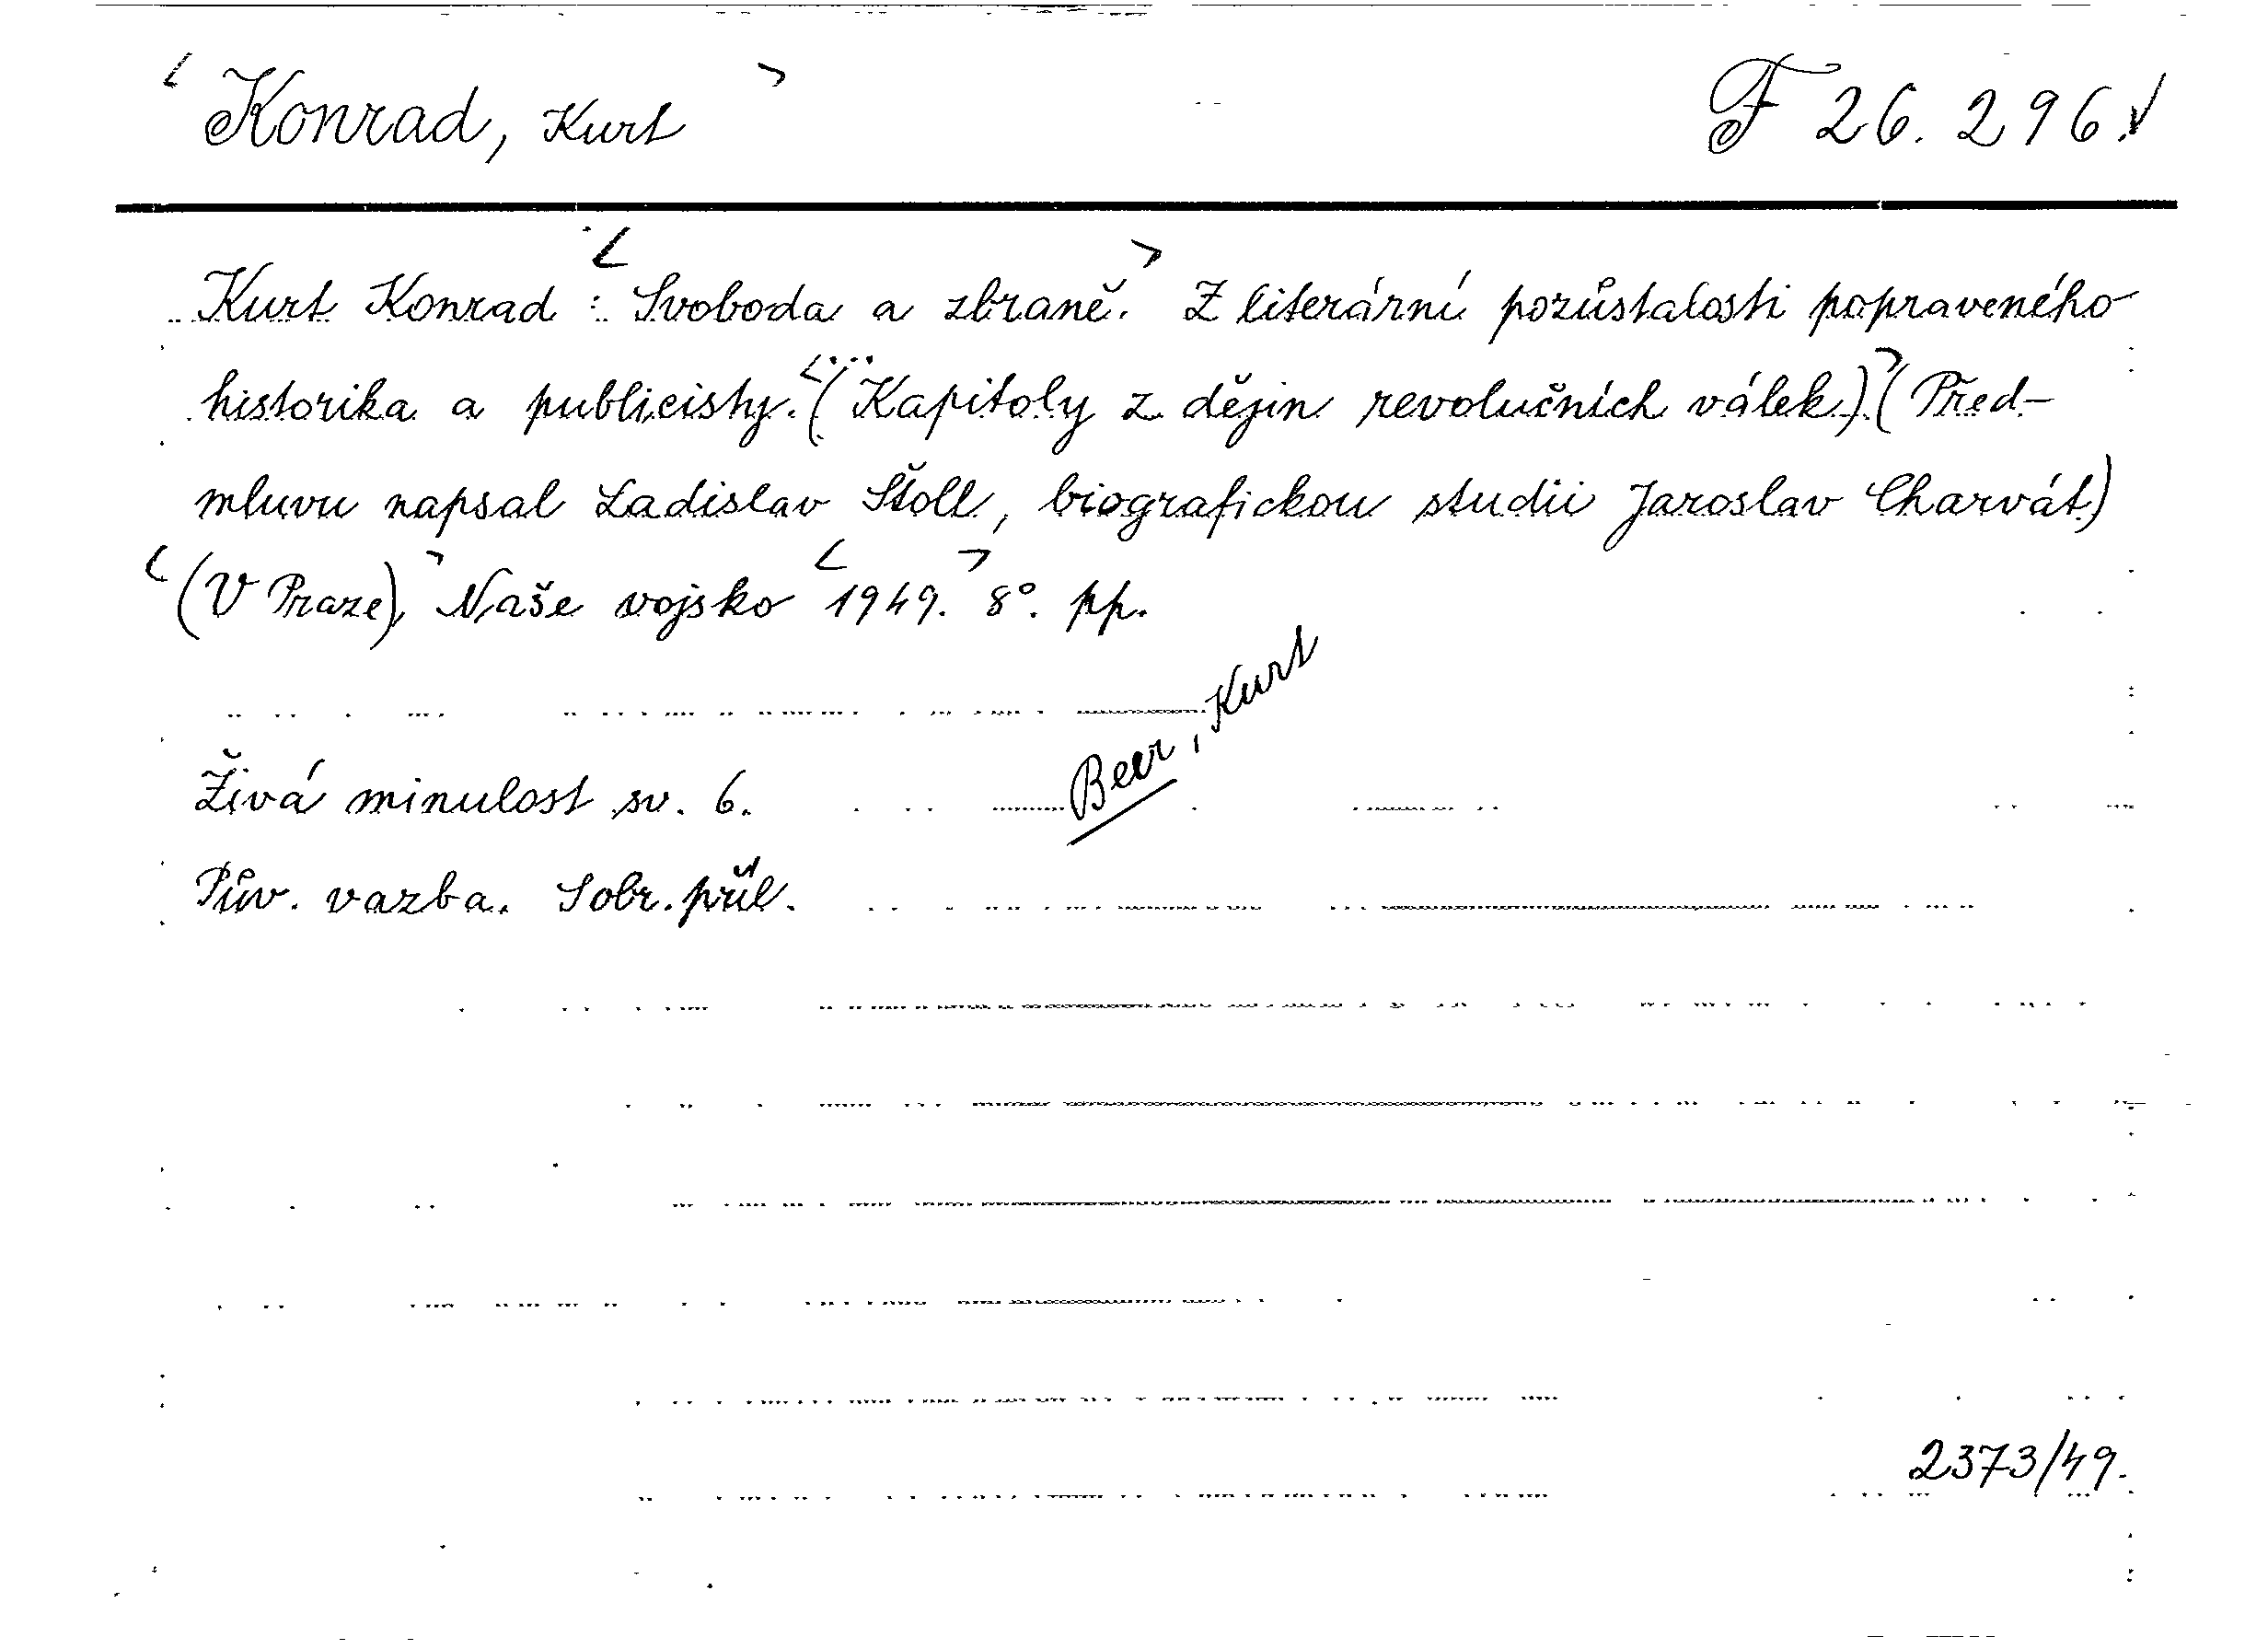 < Konrad, Kurt > F 26.296.√
Kurt Konrad : < Svoboda a zbraně. > Z literární pozůstalosti popraveného
historika a publicisty. <... (Kapitoly z dějin revolučních válek.) > (Před-
mluvu napsal Ladislav Štoll, biografickou studii Jaroslav Charvát.)
< (V Praze), > Naše vojsko < 1949. > 8°. pp.
Beer, Kurt
Živá minulost sv. 6.
Pův. vazba. Sobr. příl.
2373/49.